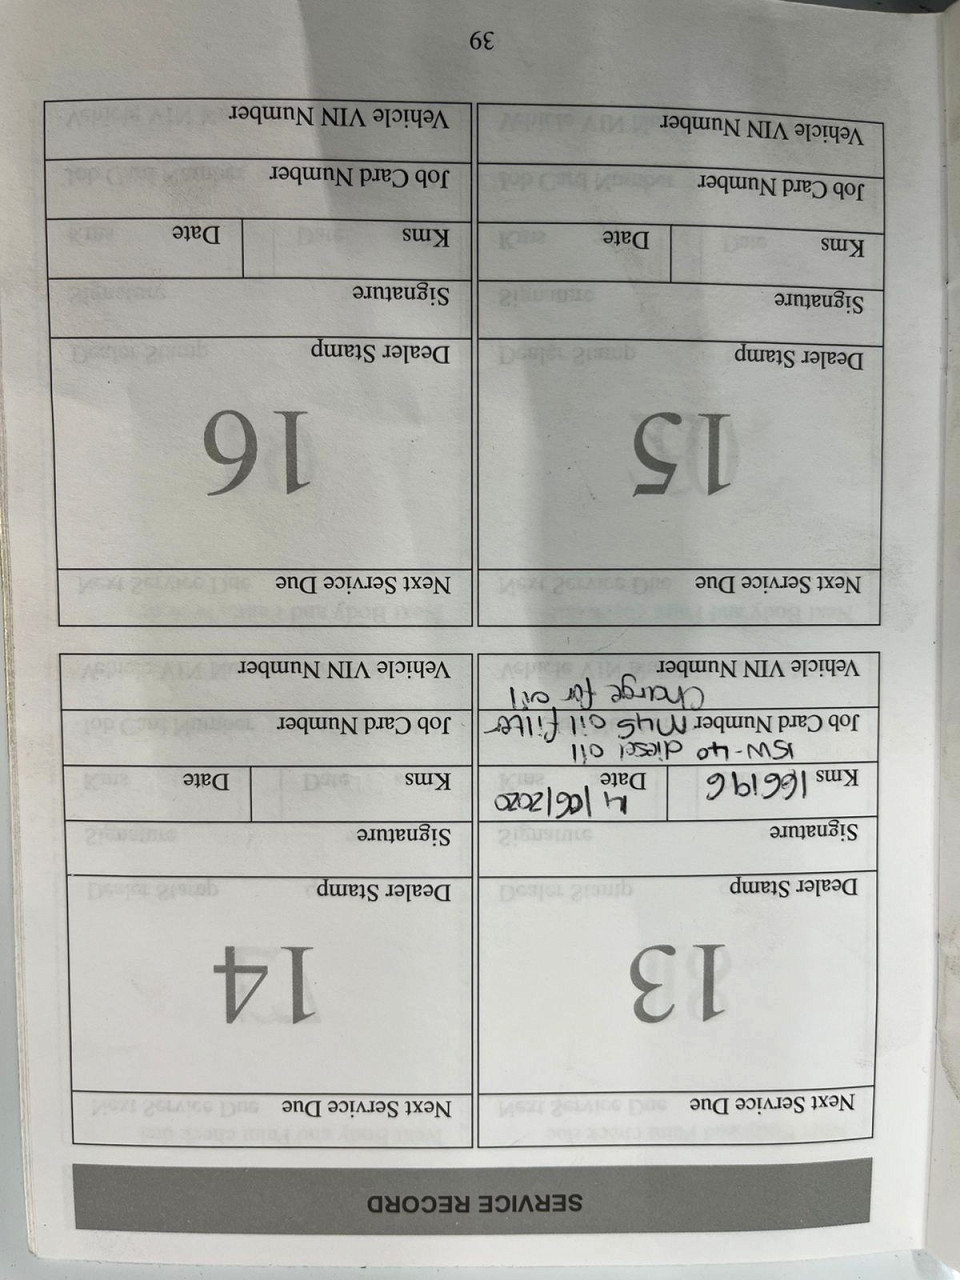 SERVICE RECORD
Next Service Due
Next Service Due
13
14
Dealer Stamp
Dealer Stamp
Signature
Signature
Kms 166196
Date 14/06/2020
Kms
Date
15W-40 diesel oil
Job Card Number oil filter
Job Card Number
Charge for oil
Vehicle VIN Number
Vehicle VIN Number
Next Service Due
Next Service Due
15
16
Dealer Stamp
Dealer Stamp
Signature
Signature
Kms
Date
Kms
Date
Job Card Number
Job Card Number
Vehicle VIN Number
Vehicle VIN Number
39